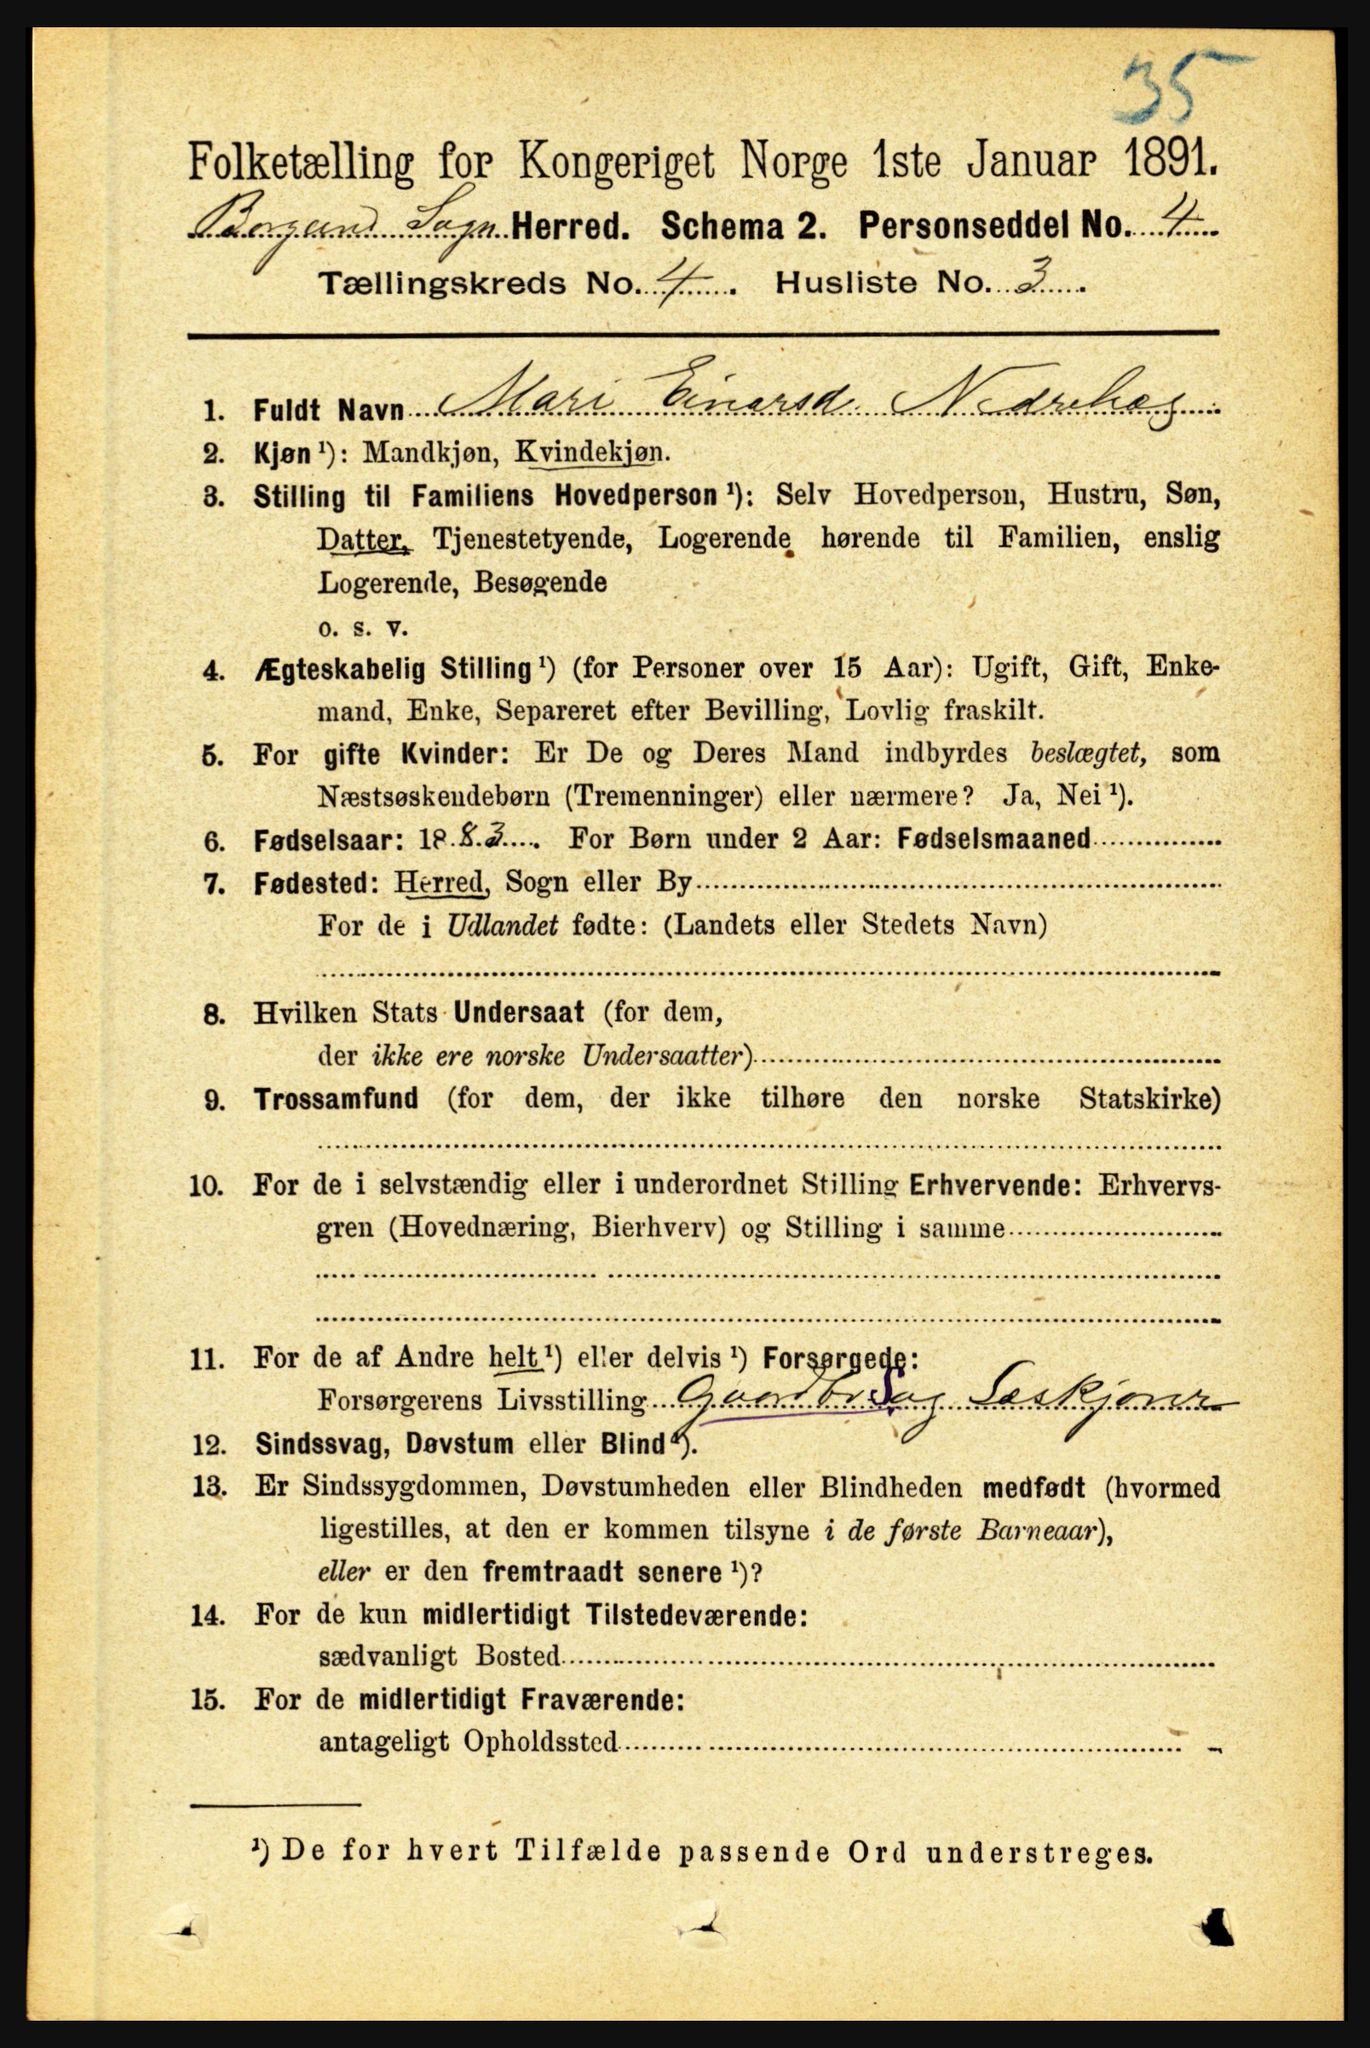 35
Folketælling for Kongeriget Norge 1ste Januar 1891.
Borgund Sogn Herred. Schema 2. Personseddel No. 4
Tællingskreds No. 4. Husliste No. 3.
1. Fuldt Navn Mari Einarsd. Nedrehæg
2. Kjøn ¹): Mandkjøn, Kvindekjøn.
3. Stilling til Familiens Hovedperson ¹): Selv Hovedperson, Hustru, Søn,
Datter, Tjenestetyende, Logerende hørende til Familien, enslig
Logerende, Besøgende
o. s. v.
4. Ægteskabelig Stilling ¹) (for Personer over 15 Aar): Ugift, Gift, Enke-
mand, Enke, Separeret efter Bevilling, Lovlig fraskilt.
5. For gifte Kvinder: Er De og Deres Mand indbyrdes beslægtet, som
Næstsøskendebørn (Tremenninger) eller nærmere? Ja, Nei ¹).
6. Fødselsaar: 1883. For Børn under 2 Aar: Fødselsmaaned
7. Fødested: Herred, Sogn eller By
For de i Udlandet fødte: (Landets eller Stedets Navn)
8. Hvilken Stats Undersaat (for dem,
der ikke ere norske Undersaatter)
9. Trossamfund (for dem, der ikke tilhøre den norske Statskirke)
10. For de i selvstændig eller i underordnet Stilling Erhvervende: Erhvervs-
gren (Hovednæring, Bierhverv) og Stilling i samme
11. For de af Andre helt ¹) eller delvis ¹) Forsørgede:
Forsørgerens Livsstilling Gaardbr S og
12. Sindssvag, Døvstum eller Blind ¹).
13. Er Sindssygdommen, Døvstumheden eller Blindheden medfødt (hvormed
ligestilles, at den er kommen tilsyne i de første Barneaar),
eller er den fremtraadt senere ¹)?
14. For de kun midlertidigt Tilstedeværende:
sædvanligt Bosted
15. For de midlertidigt Fraværende:
antageligt Opholdssted
¹) De for hvert Tilfælde passende Ord understreges.